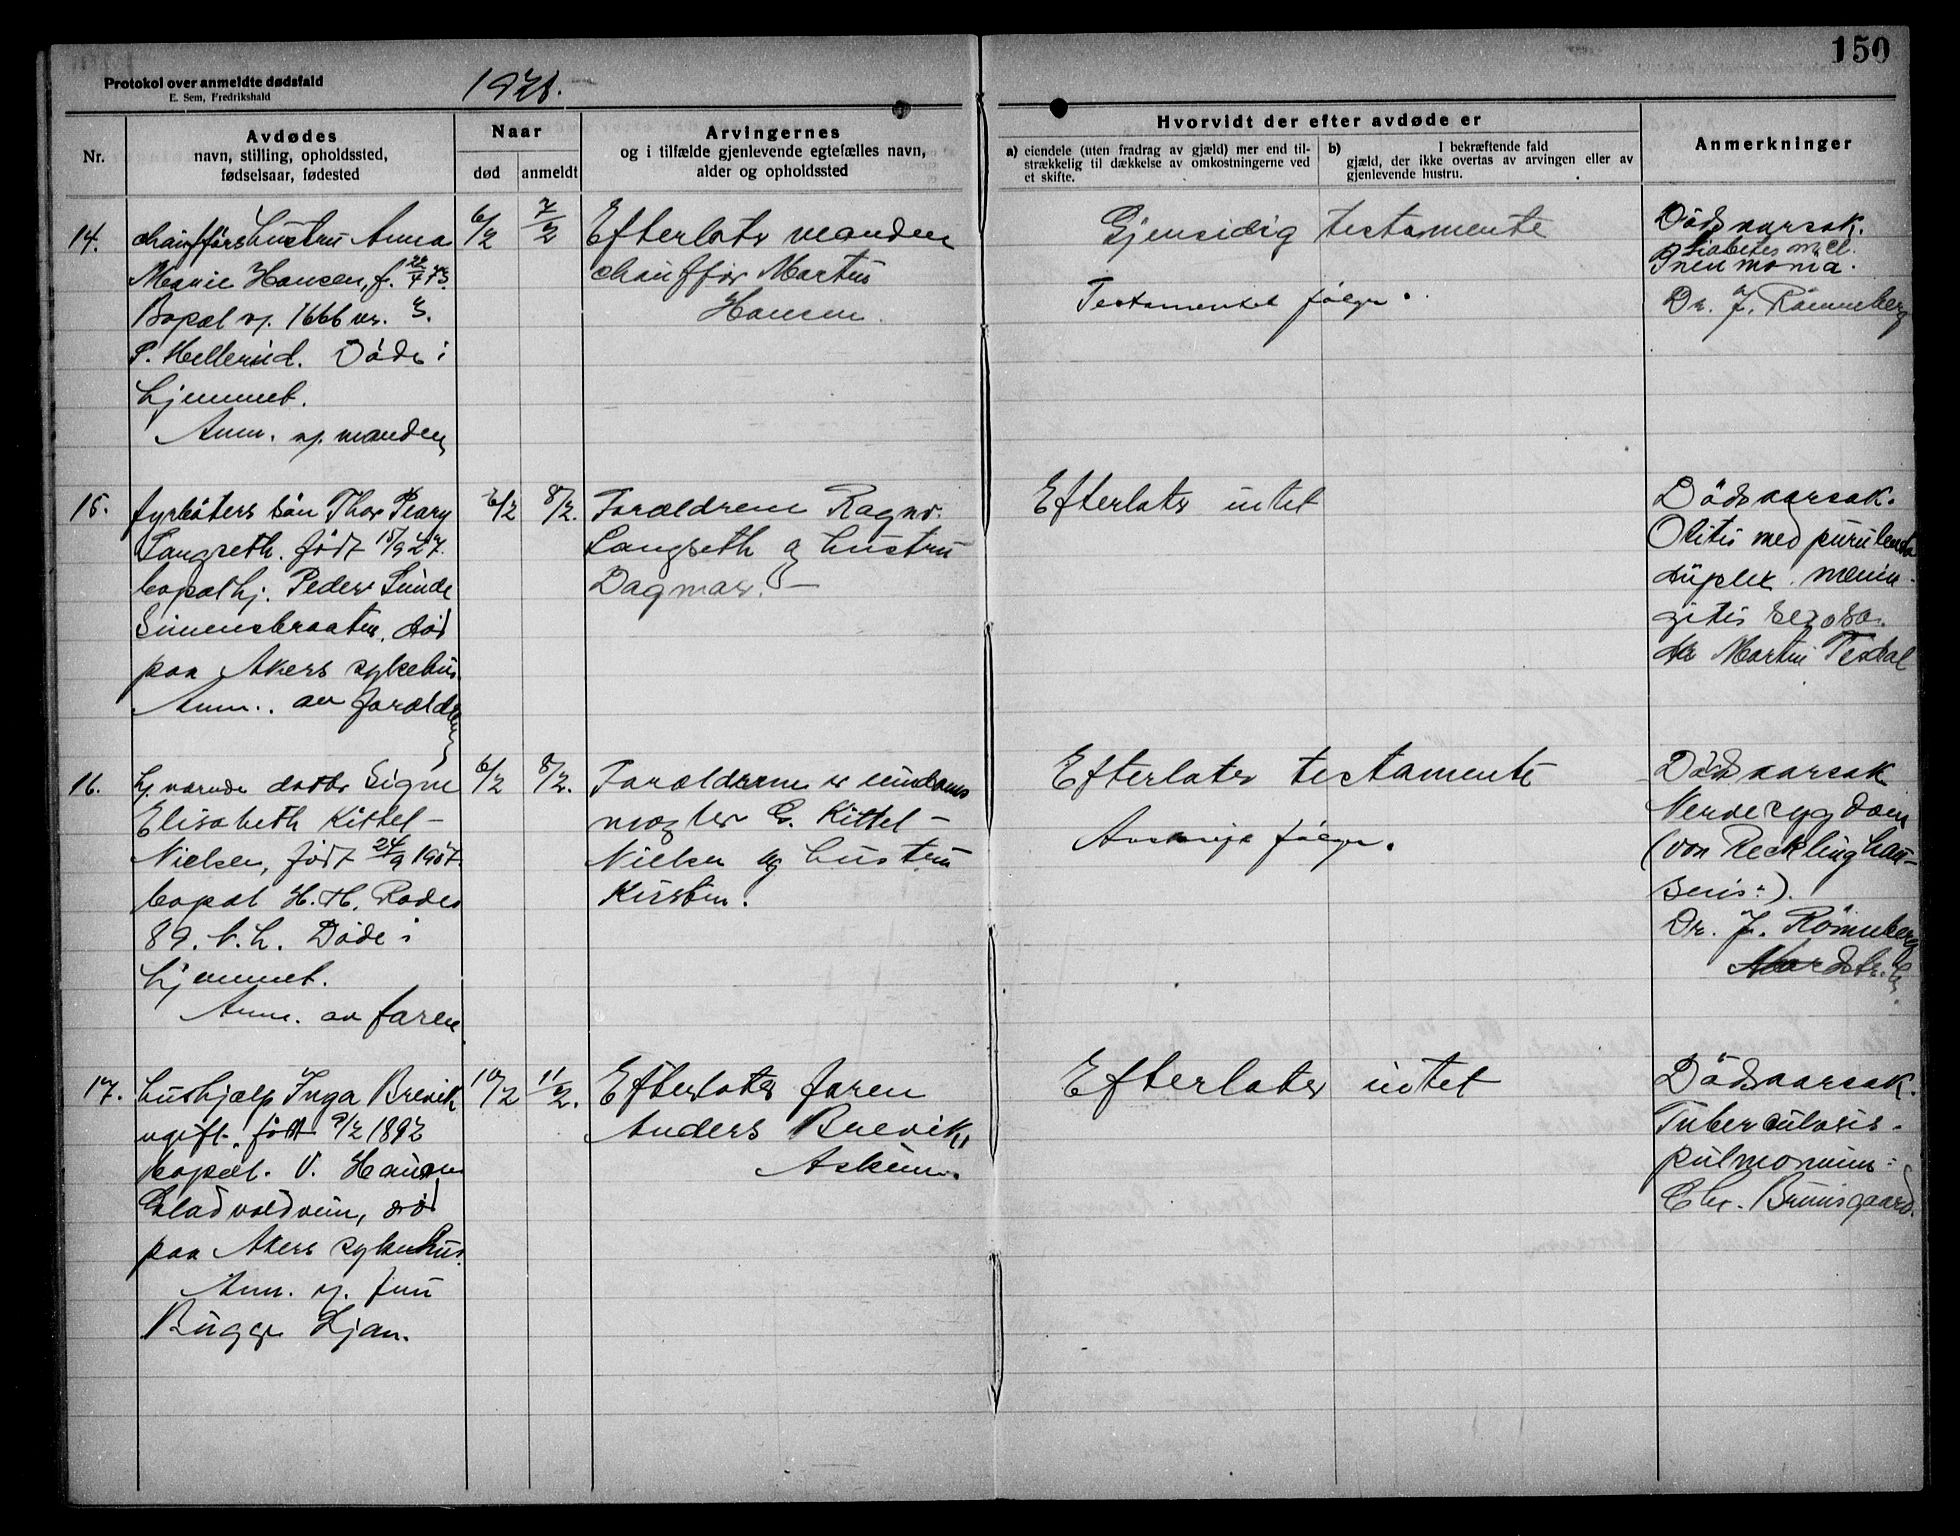 150
Protokol over anmeldte dødsfald
E. Sem, Fredrikshald
1928.
Nr.
Avdødes
navn, stilling, opholdssted,
fødselsaar, fødested
Naar
død
anmeldt
Arvingernes
og i tilfælde gjenlevende egtefælles navn,
alder og opholdssted
Hvorvidt der efter avdøde er
a) eiendele (uten fradrag av gjæld) mer end til-
strækkelig til dækkelse av omkostningerne ved
et skifte.
b) I bekræftende fald
gjæld, der ikke overtas av arvingen eller av
gjenlevende hustru.
Anmerkninger
14.
chaufførs hustru Anna
Marie Hansen, f.
Bopæl v. 1666 nr. 3.
P. Hellerud. Døde i
hjemmet.
Anm. v. manden
6/2
7/2
Efterlater manden
chauffør Martus
Hansen.
Gjensidig testamente
Testamentet følger.
Dødsaarsak.
Diabetes mel.
Pneumonia.
Dr. J. Rönneberg
15.
fyrbøters søn Thor Peary
Langseth. født 15/9 27.
bopæl hj. Peder Sunde
Simensbraaten, død
paa Akers sykehus.
Anm. av forældrene
6/2
8/2.
Forældrene Ragnv.
Langseth og hustru
Dagmar. —
Efterlater intet
Dødsaarsak.
Otitis med purulenta
duplex. menin-
gitis serosa.
dr Martin Tesdal
16.
hj.værende datter Signe
Elisabeth Kittel-
Nielsen, født 24/9 1907
bopæl H. H. Rodes
89. b. h. Døde i
hjemmet.
Anm. av faren
6/2
8/2.
Forældrene er
G. Kittel-
Nielsen og hustru
Kirsten.
Efterlater testamente
Avskrift følger.
Dødsaarsak
Nervesygdom
(von Recklinghau-
sens:).
Dr. J. Rönneberg
Nordstr. h.
17.
hushjælp Inga Brevik
ugift. født 9/2 1892
bopæl. V. Hansen
Gladvoldveien, død
paa Akers sykehus.
Anm. v. fru
Bugge Ljan.
10/2
11/2.
Efterlater faren
Anders Brevik,
Askim.
Efterlater intet
Dødsaarsak.
Tuberculosis.
pulmonum:
Chr. Bruusgaard.